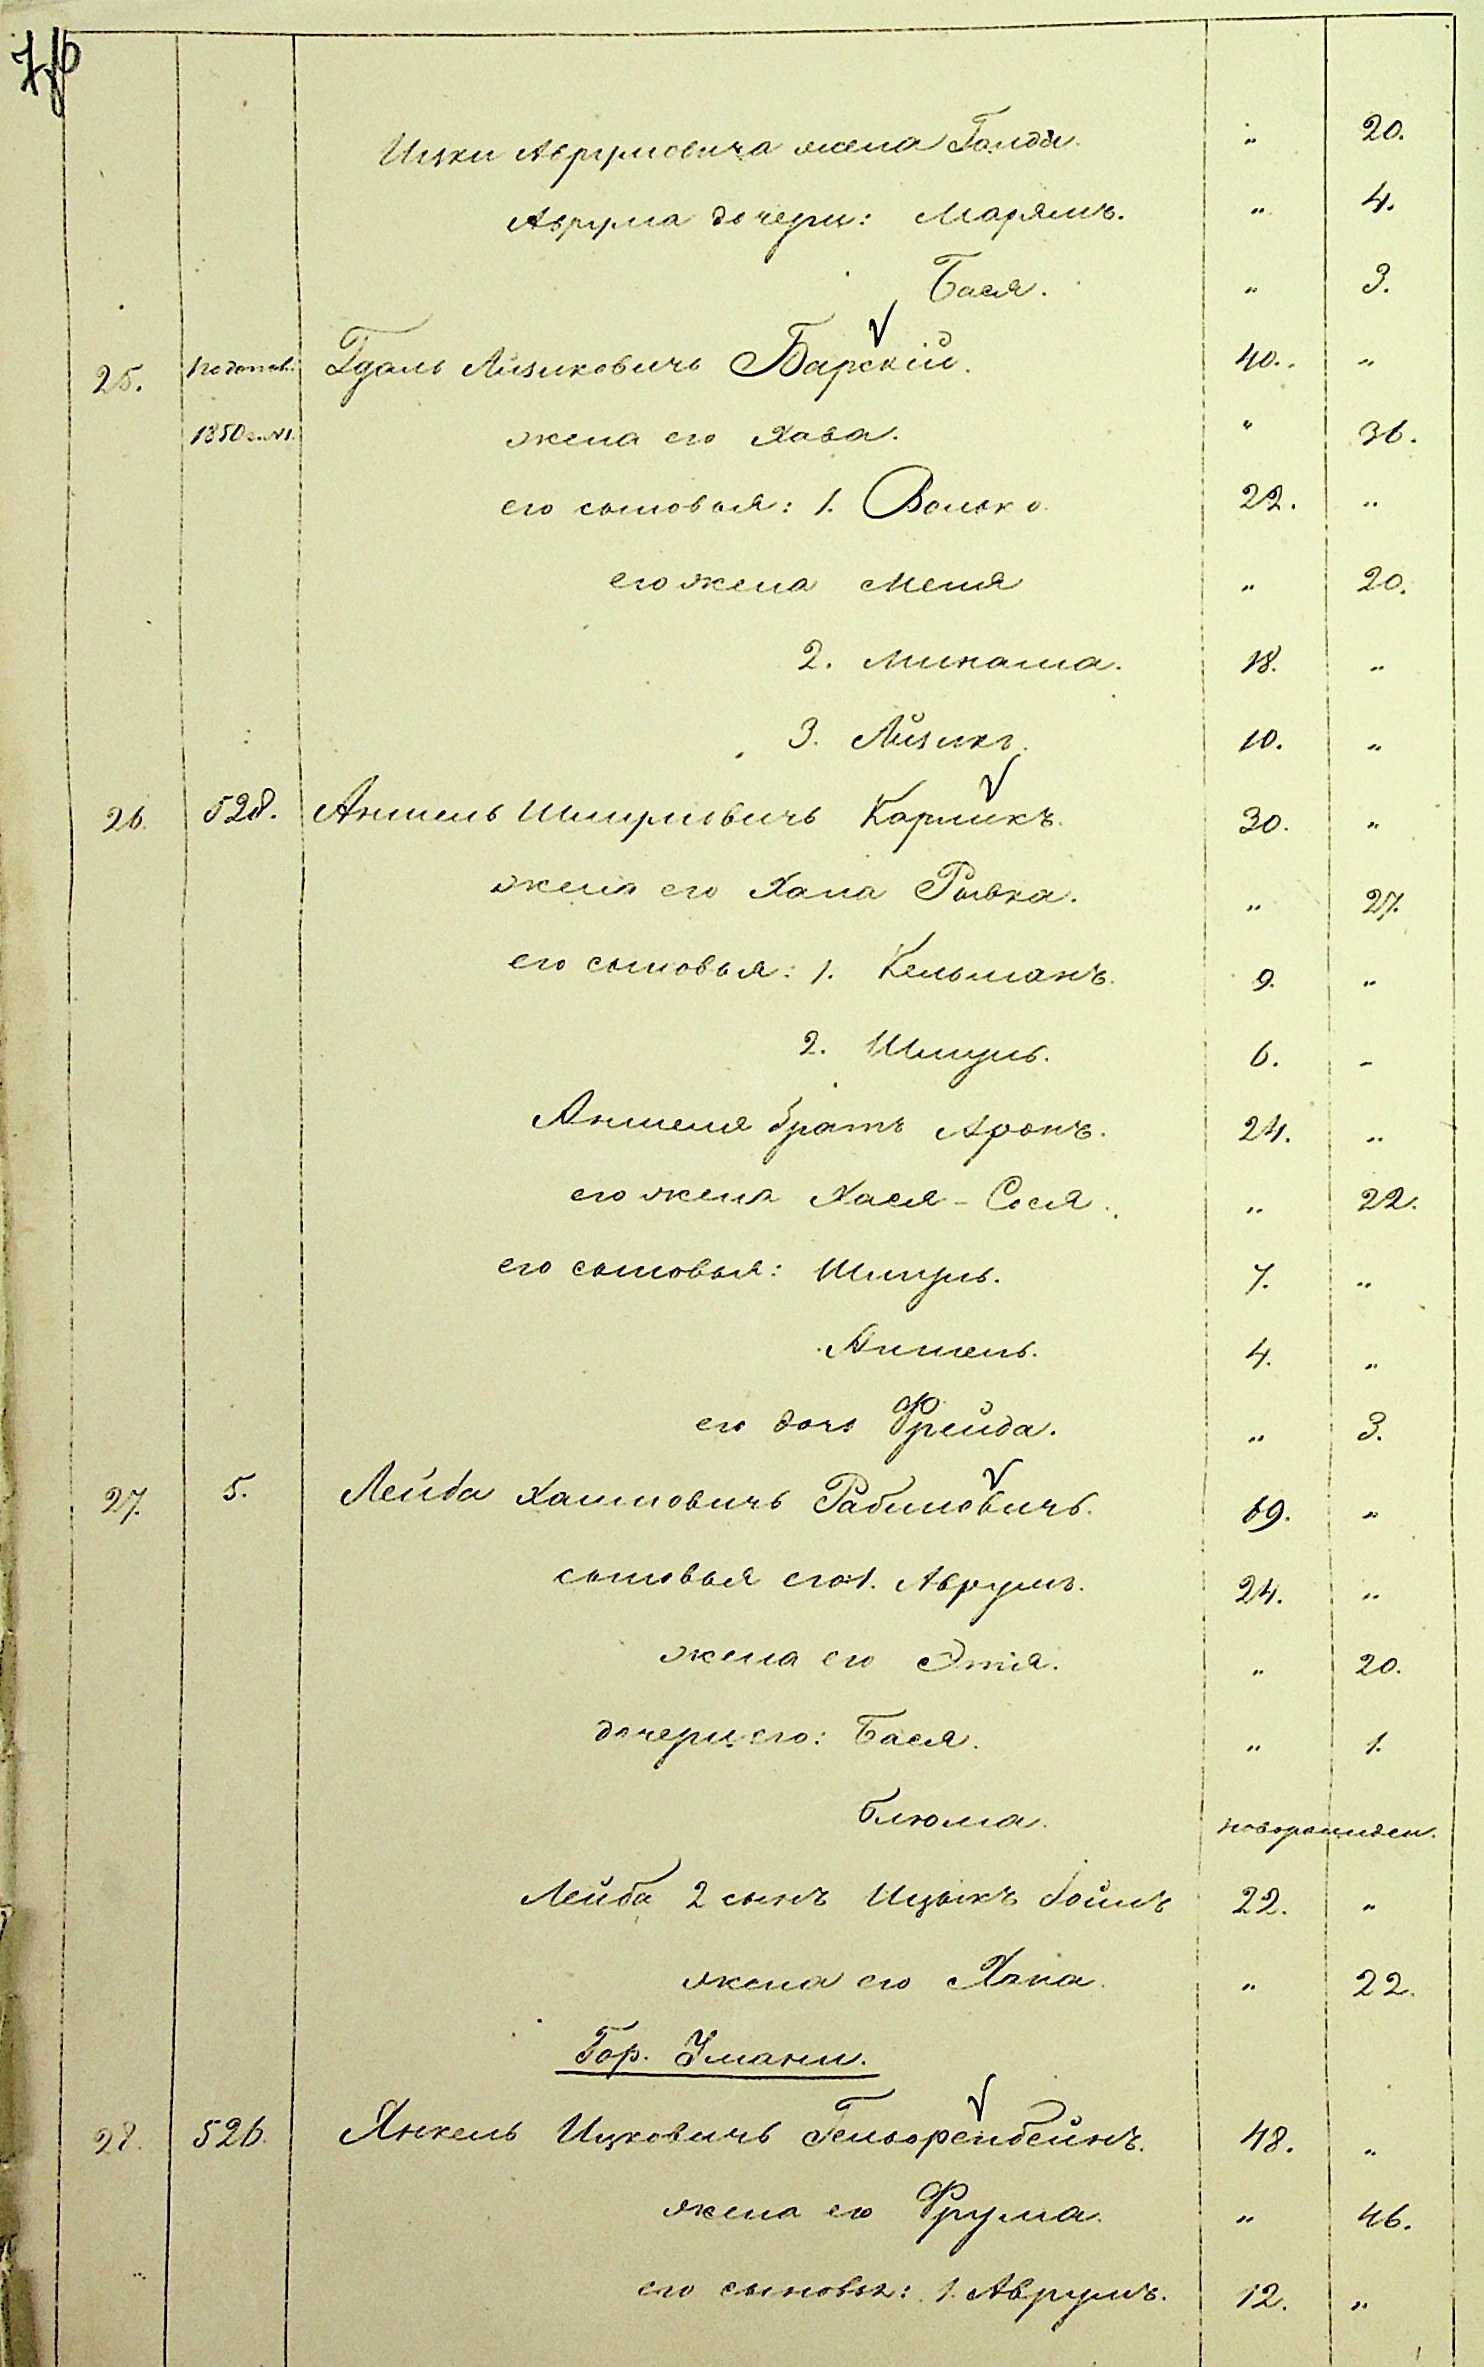 Ицки Аврумовича жена Голда. " 20.
Аврума дочери: Марьямъ. " 4.
Бася. " 3.
25. Гдаль Айзиковичъ Барскій. 40. "
1850 г. №1. жена его Хава. " 36.
его сыновья: 1. Волько 22. "
его жена Меня " 20.
2. Минаша. 18. "
3. Айзикъ. 10. "
26. 528. Аншель Шмулёвичъ Кормикъ. 30. "
жена его Хана Рывка. " 27.
его сыновья: 1. Кельманъ. 9. "
2. Шмуль. 6. -
Аншеля братъ Аронъ. 24. "
его жена Хася-Сося. " 22.
его сыновья: Шмуль. 7. "
Аншель. 4. "
его дочь Фрейда. " 3.
27. 5. Лейба Хаимовичъ Рабиновичъ. 69. "
сыновья его 1. Аврумъ. 24. "
жена его Этля. " 20.
дочери его: Бася. " 1.
Блюма. новорожден.
Лейба 2 сынъ Ицыкъ Фоимъ 22. "
жена его Хана. " 22.
Гор. Умани.
28. 526. Янкель Ицковичъ Гельоренбейнъ. 48. "
жена его Фрума. " 46.
его сыновья: 1. Аврумъ. 12. "